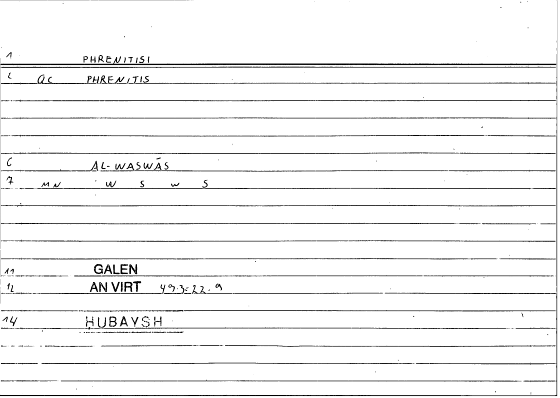 1 PHRENITISI
2 QC PHRENITIS
6 AL-WASWĀS
7 MN W S W S
11 GALEN
12 AN VIRT
14 HUBAYSH